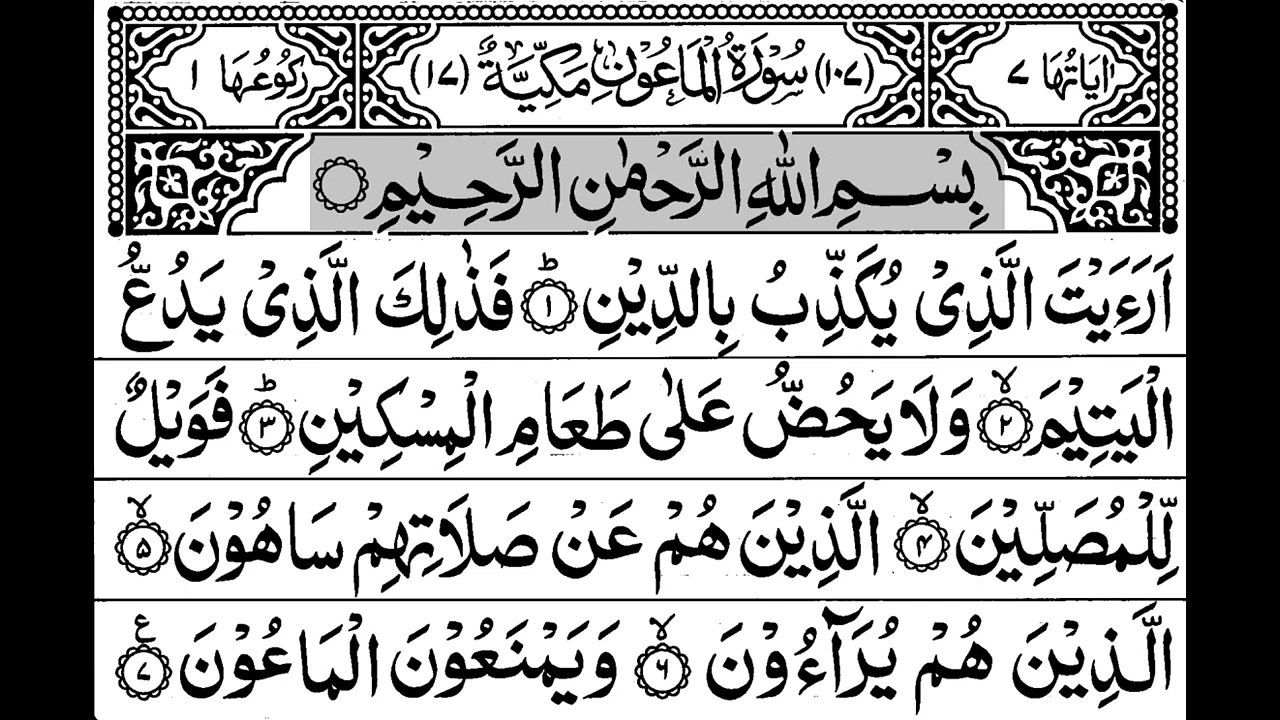 اٰیَاتُهَا ۷ (۱۰۷) سُوْرَةُ الْمَاعُوْنِ مَكِّیَّةٌ (۱۷) رُكُوْعُهَا ۱
بِسْمِ اللّٰهِ الرَّحْمٰنِ الرَّحِیْمِ
اَرَءَیْتَ الَّذِیْ یُكَذِّبُ بِالدِّیْنِ ؕ ۱ فَذٰلِكَ الَّذِیْ یَدُعُّ
الْیَتِیْمَ ۙ ۲ وَلَا یَحُضُّ عَلٰی طَعَامِ الْمِسْكِیْنِ ؕ ۳ فَوَیْلٌ
لِّلْمُصَلِّیْنَ ۙ ۴ الَّذِیْنَ هُمْ عَنْ صَلَاتِهِمْ سَاهُوْنَ ۙ ۵
الَّذِیْنَ هُمْ یُرَآءُوْنَ ۙ ۶ وَیَمْنَعُوْنَ الْمَاعُوْنَ ع ۷